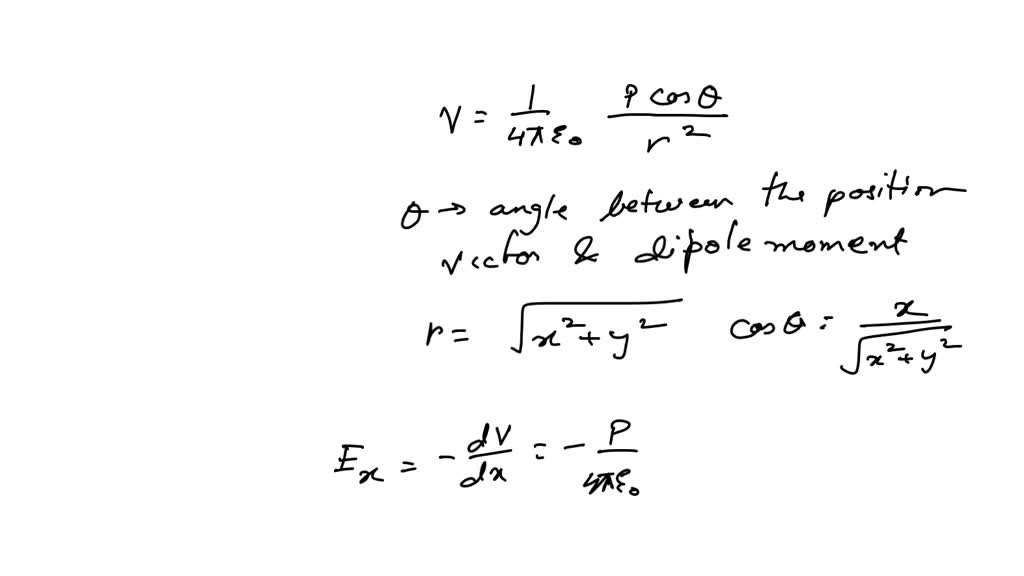 V = 1/4πε₀ P cosθ/r²
θ → angle between the position
vector & dipole moment
r = √(x²+y²) cosθ = x/√(x²+y²)
Eₓ = -dV/dx = -P/4πε₀